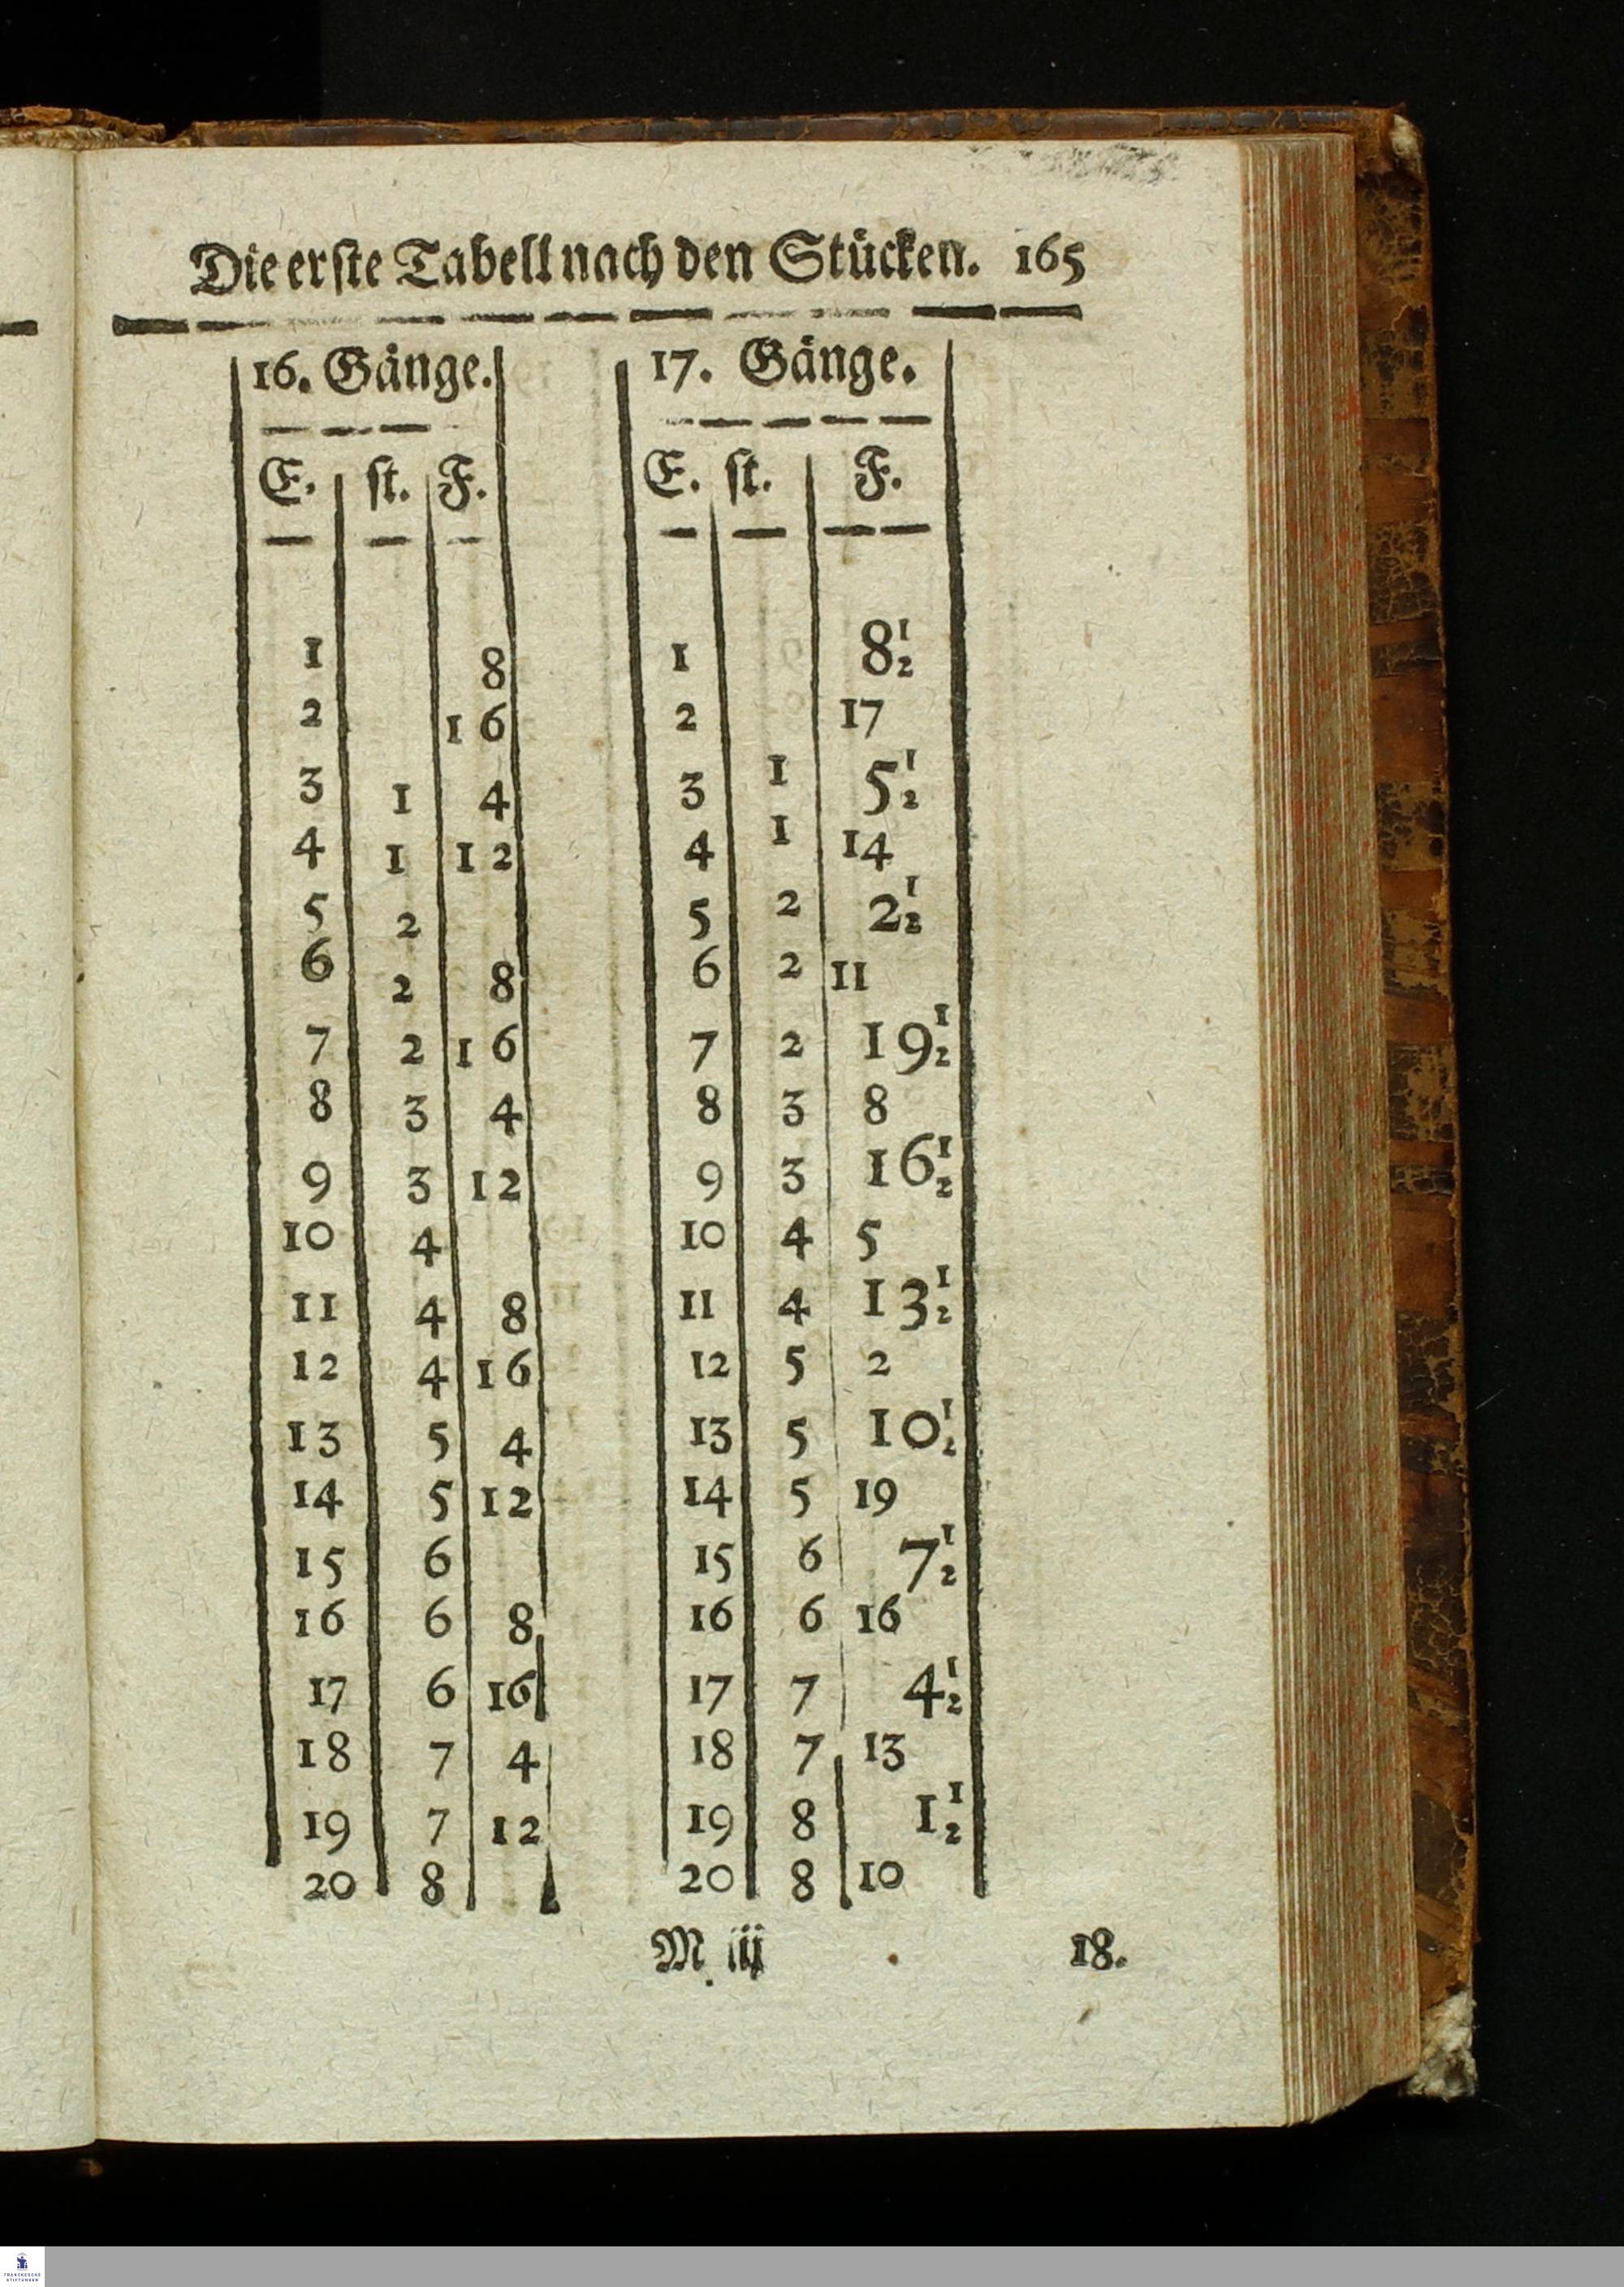 Die erste Tabell nach den Stücken. 165
16. Gänge.
E. st. F.
1 8
2 16
3 1 4
4 1 12
5 2
6 2 8
7 2 16
8 3 4
9 3 12
10 4
11 4 8
12 4 16
13 5 4
14 5 12
15 6
16 6 8
17 6 16
18 7 4
19 7 12
20 8
17. Gänge.
E. st. F.
1 8 1/2
2 17
3 1 5 1/2
4 1 14
5 2 2 1/2
6 2 11
7 2 19 1/2
8 3 8
9 3 16 1/2
10 4 5
11 4 13 1/2
12 5 2
13 5 10 1/2
14 5 19
15 6 7 1/2
16 6 16
17 7 4 1/2
18 7 13
19 8 1 1/2
20 8 10
M iij 18.
FRANCKESCHE
STIFTUNGEN